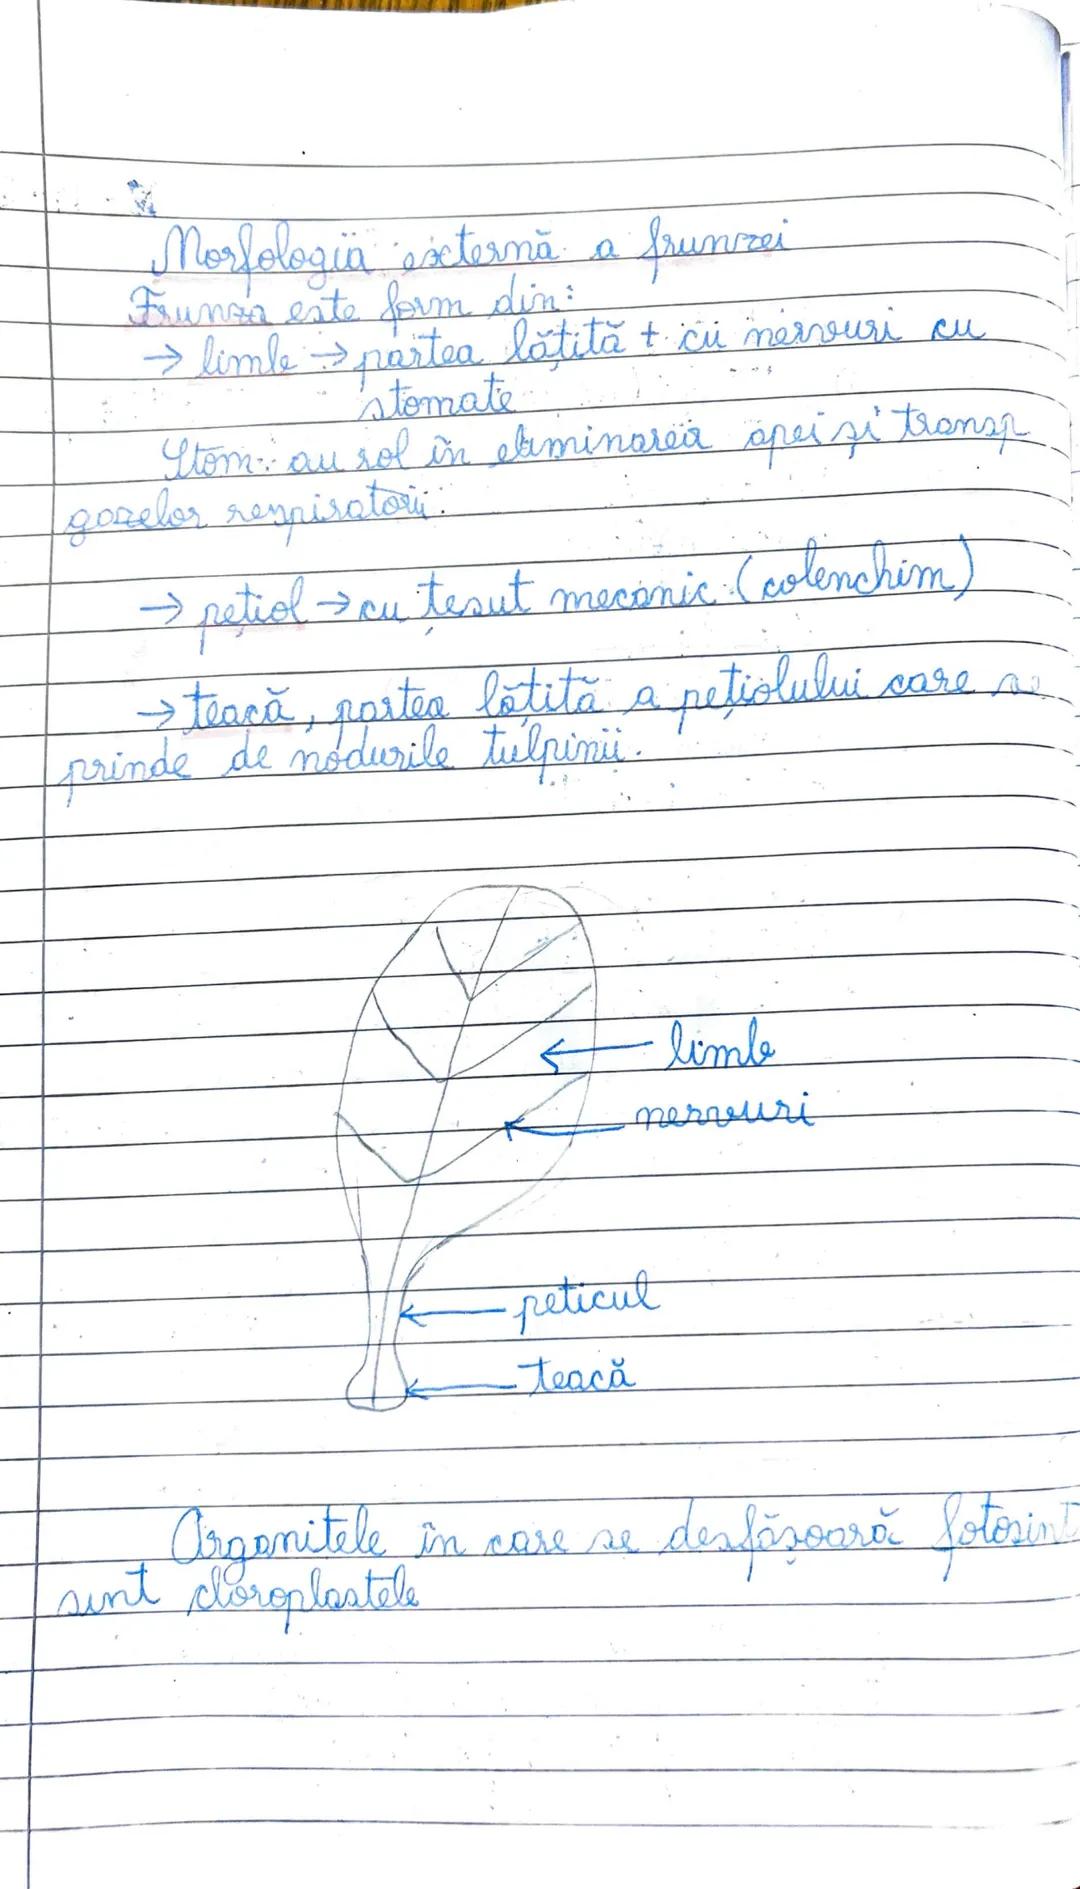 Morfologia externă a frunzei
Frunza este form din:
→ limb → partea lățită + cu nervuri cu
stomate
Stom: au rol în eliminarea apei și transp
gazelor respiratorii.
→ pețiol → cu țesut mecanic (colenchim)
→ teacă, partea lățită a pețiolului care se
prinde de nodurile tulpinii.
limb
nervuri
peticul
teacă
Organitele în care se desfășoară fotosint
sunt cloroplastele